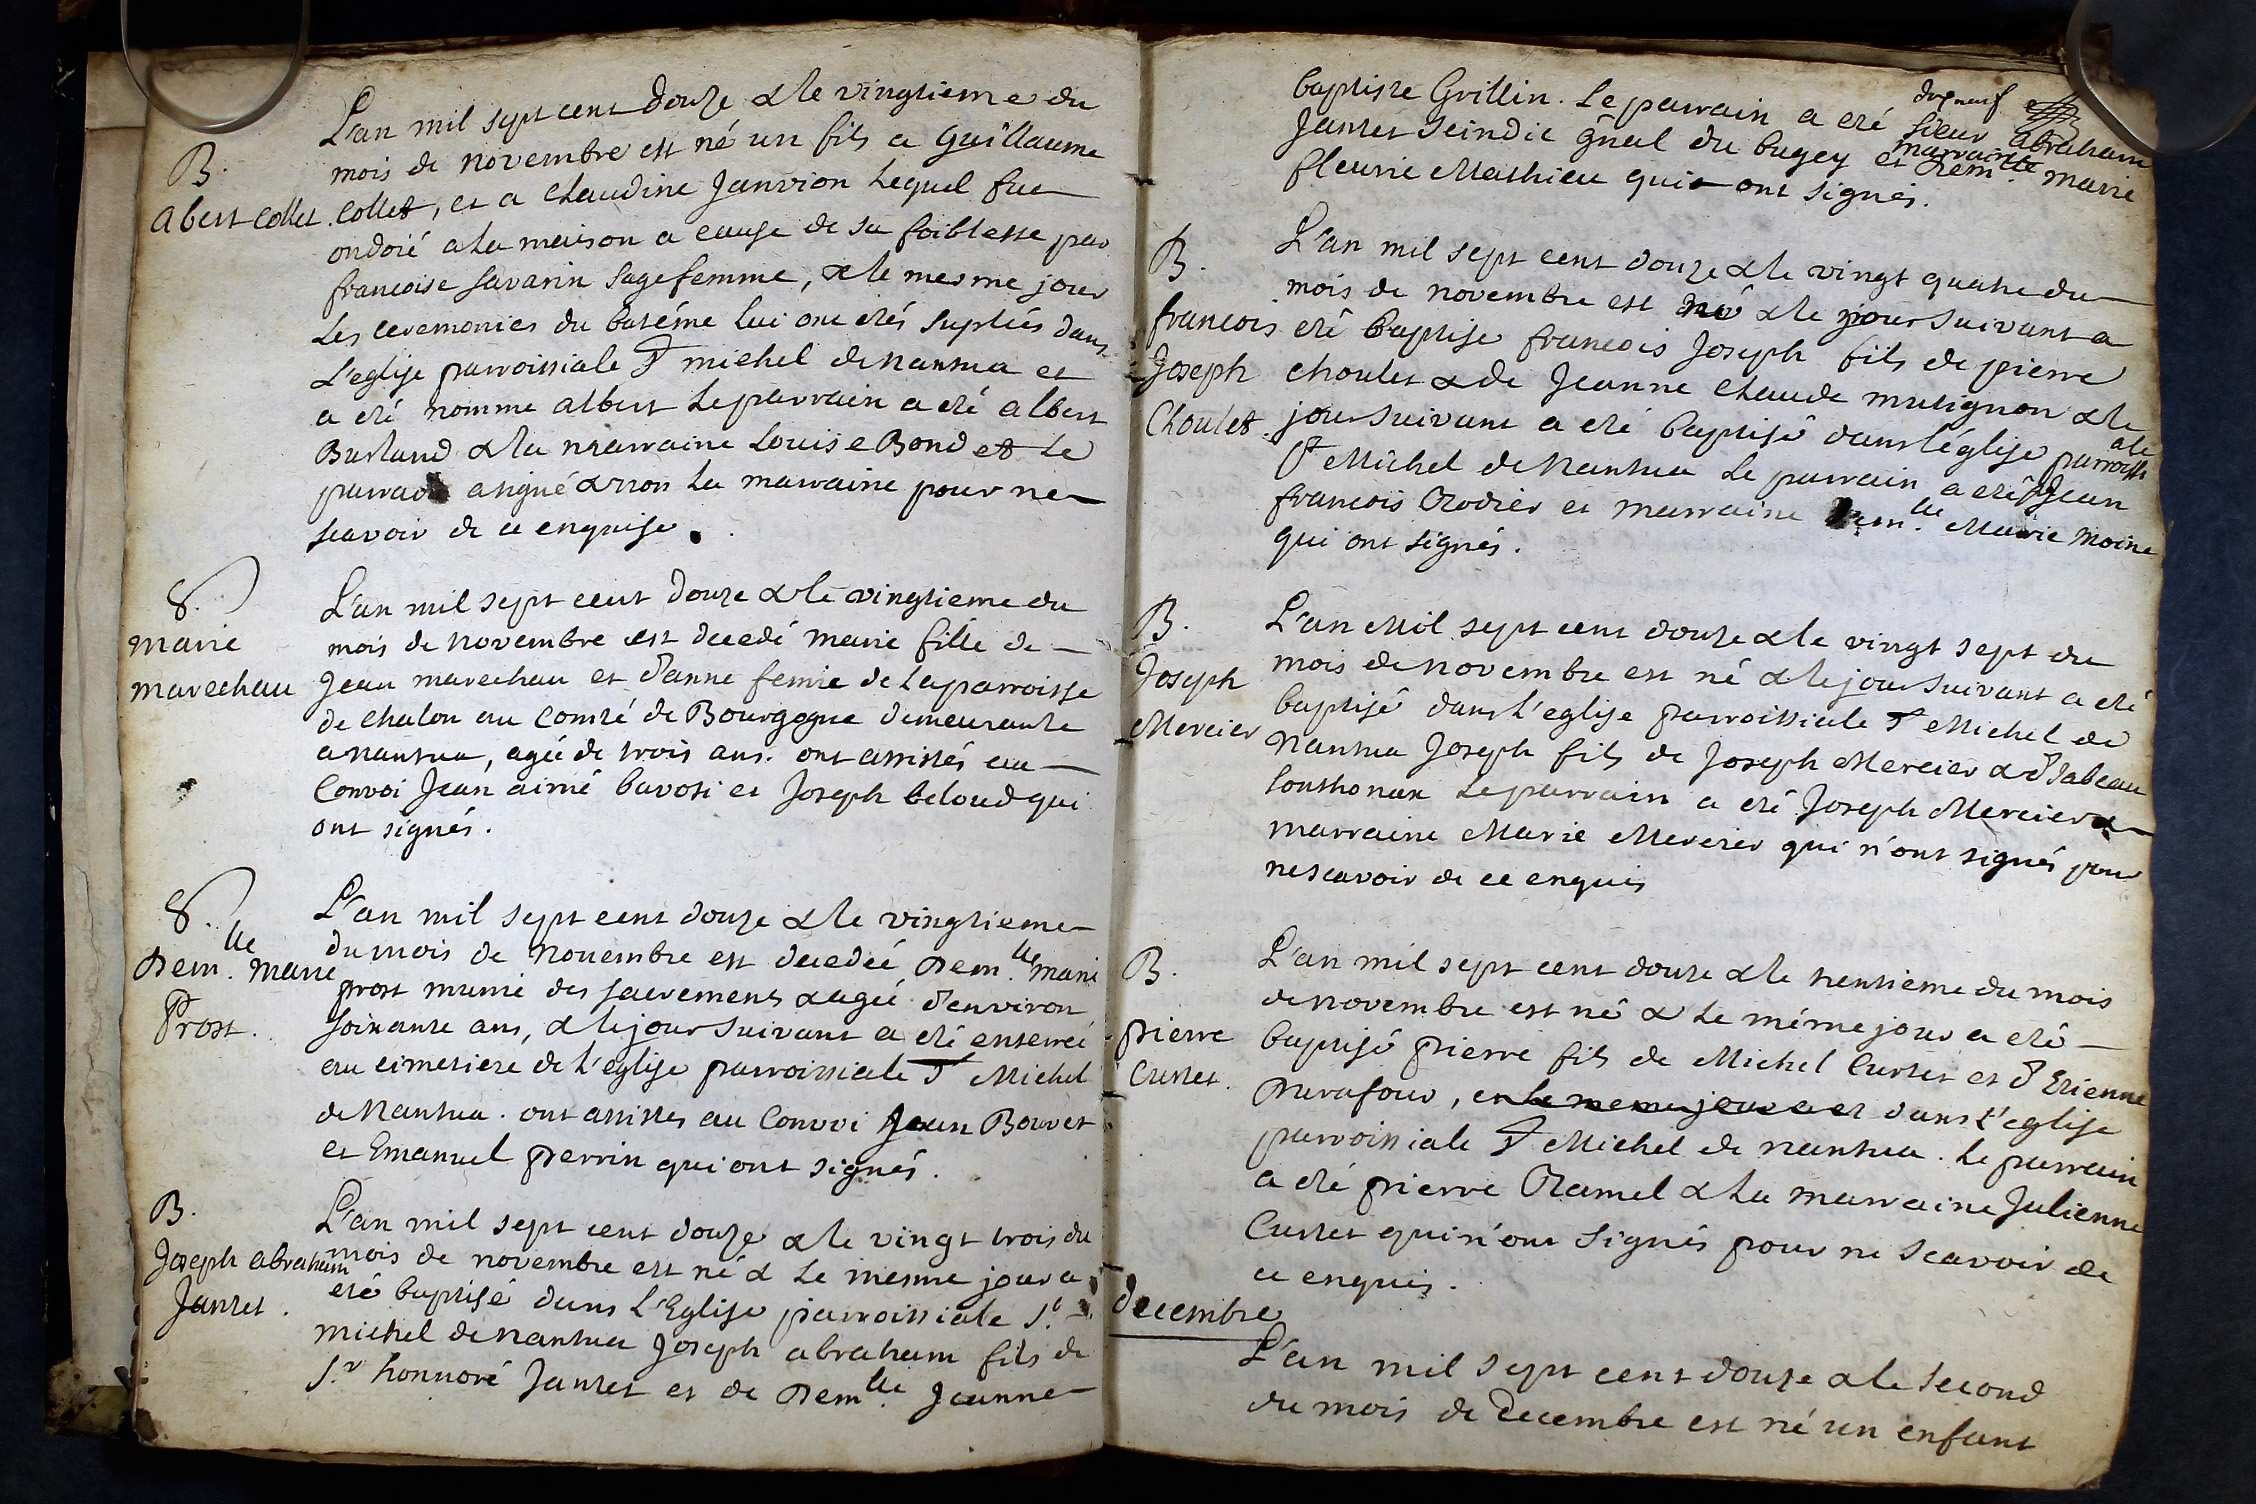 L'an mil sept cent douze & le vingtieme du
B.
mois de novembre est né un fils a Guillaume
Abert Collet.
Collet, et a Claudine Janvion lequel fut
ondoié a la maison a cause de sa foiblesse par
francoise Savarin sagefemme, & le mesme jour
les ceremonies du batéme lui ont etés supléés dans
L'eglise parroissiale St michel de nantua et
a eté nomme albert Le parrain a eté albert
Burland & la marraine Louise Bond et Le
parrain a signé & non La marraine pour ne
scavoir de ce enquise.
S.
marie
marechau
L'an mil sept cent douze & le vingtieme du
mois de novembre est decedé marie fille de
Jean marechau et d'anne femie de La parroisse
de chalon au Comté de Bourgogne demeurante
a nantua, agée de trois ans. ont assistés au
Convoi Jean aimé bavosi et Joseph beloud qui
ont signés.
S.
Dem.lle Marie
Prost.
L'an mil sept cent douze & le vingtieme
du mois de Novembre est decedée Dem.lle marie
prost munie des sacrements & agée d'environ
soixante ans, & le jour suivant a eté enterrée
au cimetiere de l'eglise parroissiale St Michel
de Nantua. ont assistes au Convoi Jean Bouvet
et Emanuel perrin qui ont signés.
B.
Joseph abraham
Jantet.
L'an mil sept cent douze & le vingt trois du
mois de novembre est né & Le mesme jour a
eté baptisé dans L'Eglise parroissiale St.
michel de nantua Joseph abraham fils de
Sr. honnoré Jantet et de Dem.lle Jeanne
baptiste Grillin. Le parrain a eté sieur abraham
Jantet Scindic gñal du bugey et marraine Dem.lle marie
fleurie Mathieu qui ont signés.
B.
francois
Joseph
Choulet.
L'an mil sept cent douze & le vingt quatre du
mois de novembre est né & le jour suivant a
eté baptise francois Joseph fils de pierre
choulet & de Jeanne Claude mutignon & le
jour suivant a eté baptisé dans l'église parroissiale
St Michel de Nantua Le parrain a eté Jean
francois Rodier et marraine Dem.lle Marie Moine
qui ont signés.
B.
Joseph
Mercier
L'an Mil sept cent douze & le vingt sept du
mois de novembre est né & le jour suivant a eté
baptisé dans L'eglise parroissiale St Michel de
Nantua Joseph fils de Joseph Mercier & d'Isabeau
Le parrain a eté Joseph Mercier &
marraine Marie Mercier qui n'ont signés pour
ne scavoir de ce enquis
B.
pierre
Curtet.
L'an mil sept cent douze & le trentieme du mois
de novembre est né & Le méme jour a eté
baptisé pierre fils de Michel Curtet et d'Etienne
en le meme jour a et dans l'eglise
parroissiale St Michel de nantua. Le parrain
a eté pierre Ramel & La marraine Julienne
Curtet qui n'ont Signés pour ne scavoir de
ce enquis.
decembre
L'an mil sept cent douze & le second
du mois de decembre est né un enfant